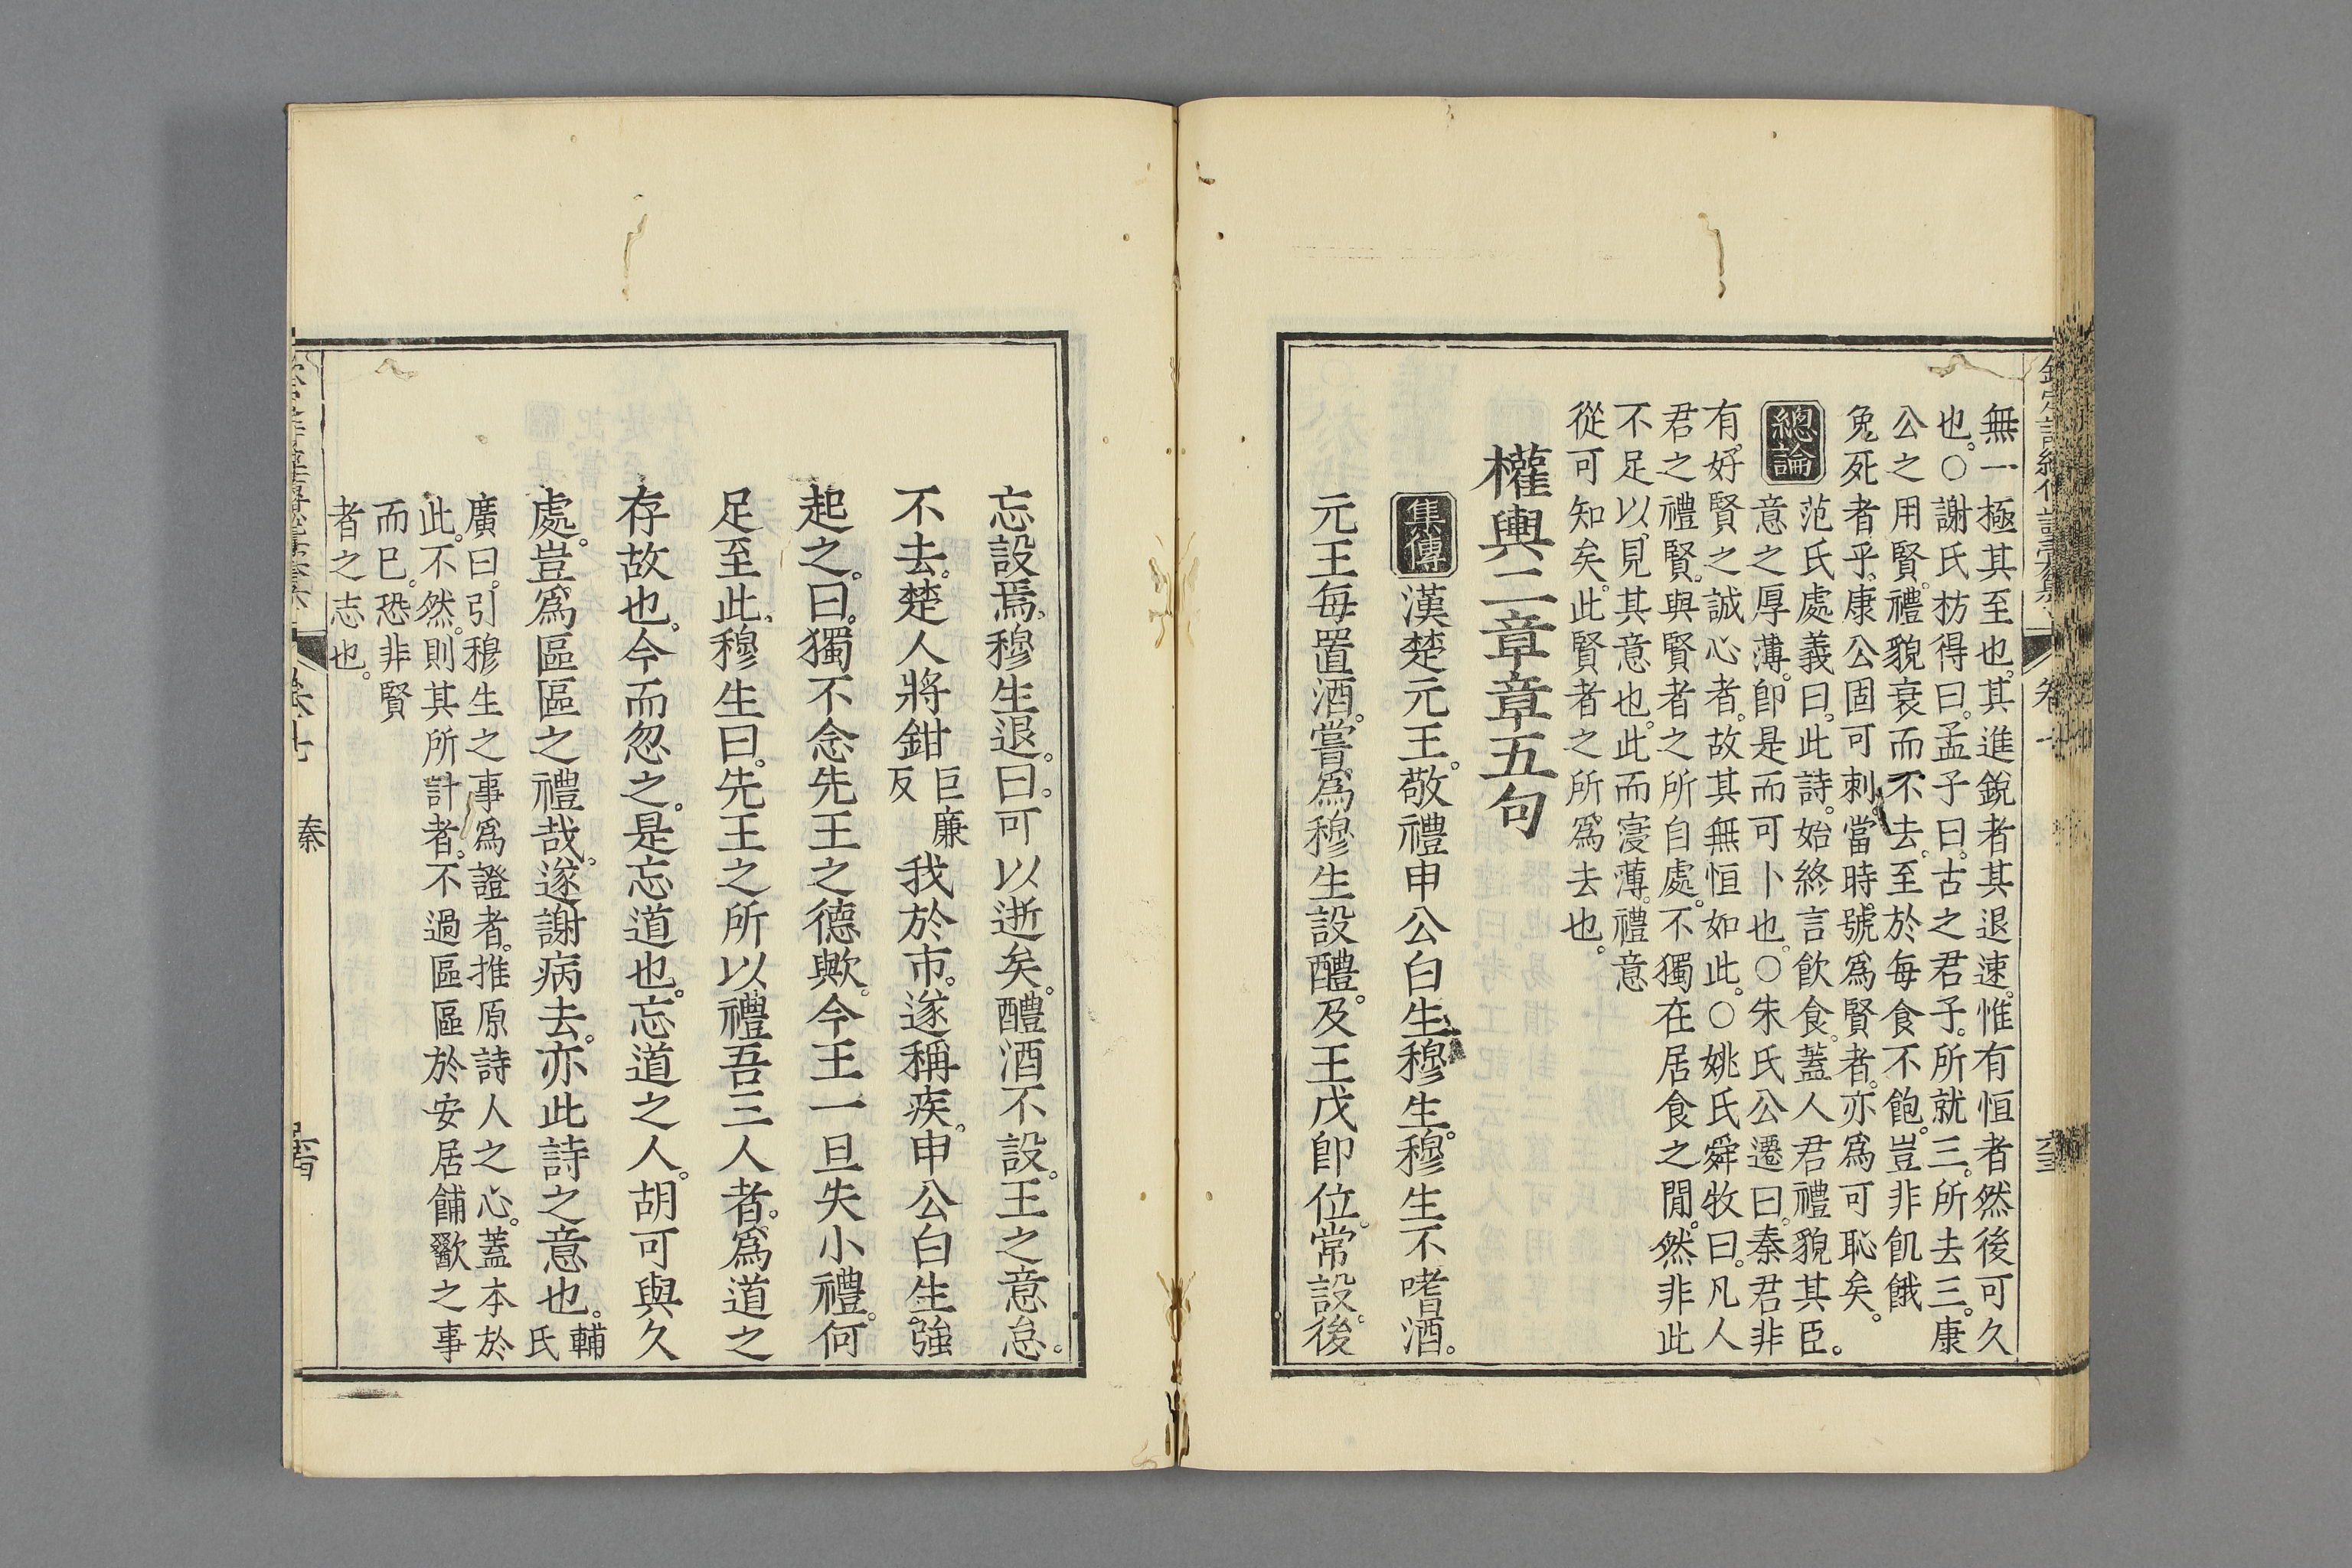 無一極其至也其進銳者其退速惟有恒者然後可久
也○謝氏枋得曰孟子曰古之君子所就三所去三康
公之用賢禮貌衰而不去至於每食不飽豈非飢餓
免死者乎康公固可刺當時號爲賢者亦爲可恥矣
總論
范氏處義曰此詩始終言飲食蓋人君禮貌其臣
意之厚薄卽是而可卜也○朱氏公遷曰秦君非
有好賢之誠心者故其無恒如此○姚氏舜牧曰凡人
君之禮賢與賢者之所自處不獨在居食之閒然非此
不足以見其意也此而寖薄禮意
從可知矣此賢者之所爲去也
權輿二章章五句
集傳漢楚元王敬禮申公白生穆生穆生不嗜酒
元王每置酒嘗爲穆生設醴及王戊卽位常設後
忘設焉穆生退曰可以逝矣醴酒不設王之意怠
不去楚人將鉗巨廉反我於市遂稱疾申公白生強
起之曰獨不念先王之德歟今王一旦失小禮何
足至此穆生曰先王之所以禮吾三人者爲道之
存故也今而忽之是忘道也忘道之人胡可與久
處豈爲區區之禮哉遂謝病去亦此詩之意也輔氏
廣曰引穆生之事爲證者推原詩人之心蓋本於
此不然則其所計者不過區區於安居餔歠之事
而已恐非賢
者之志也
秦